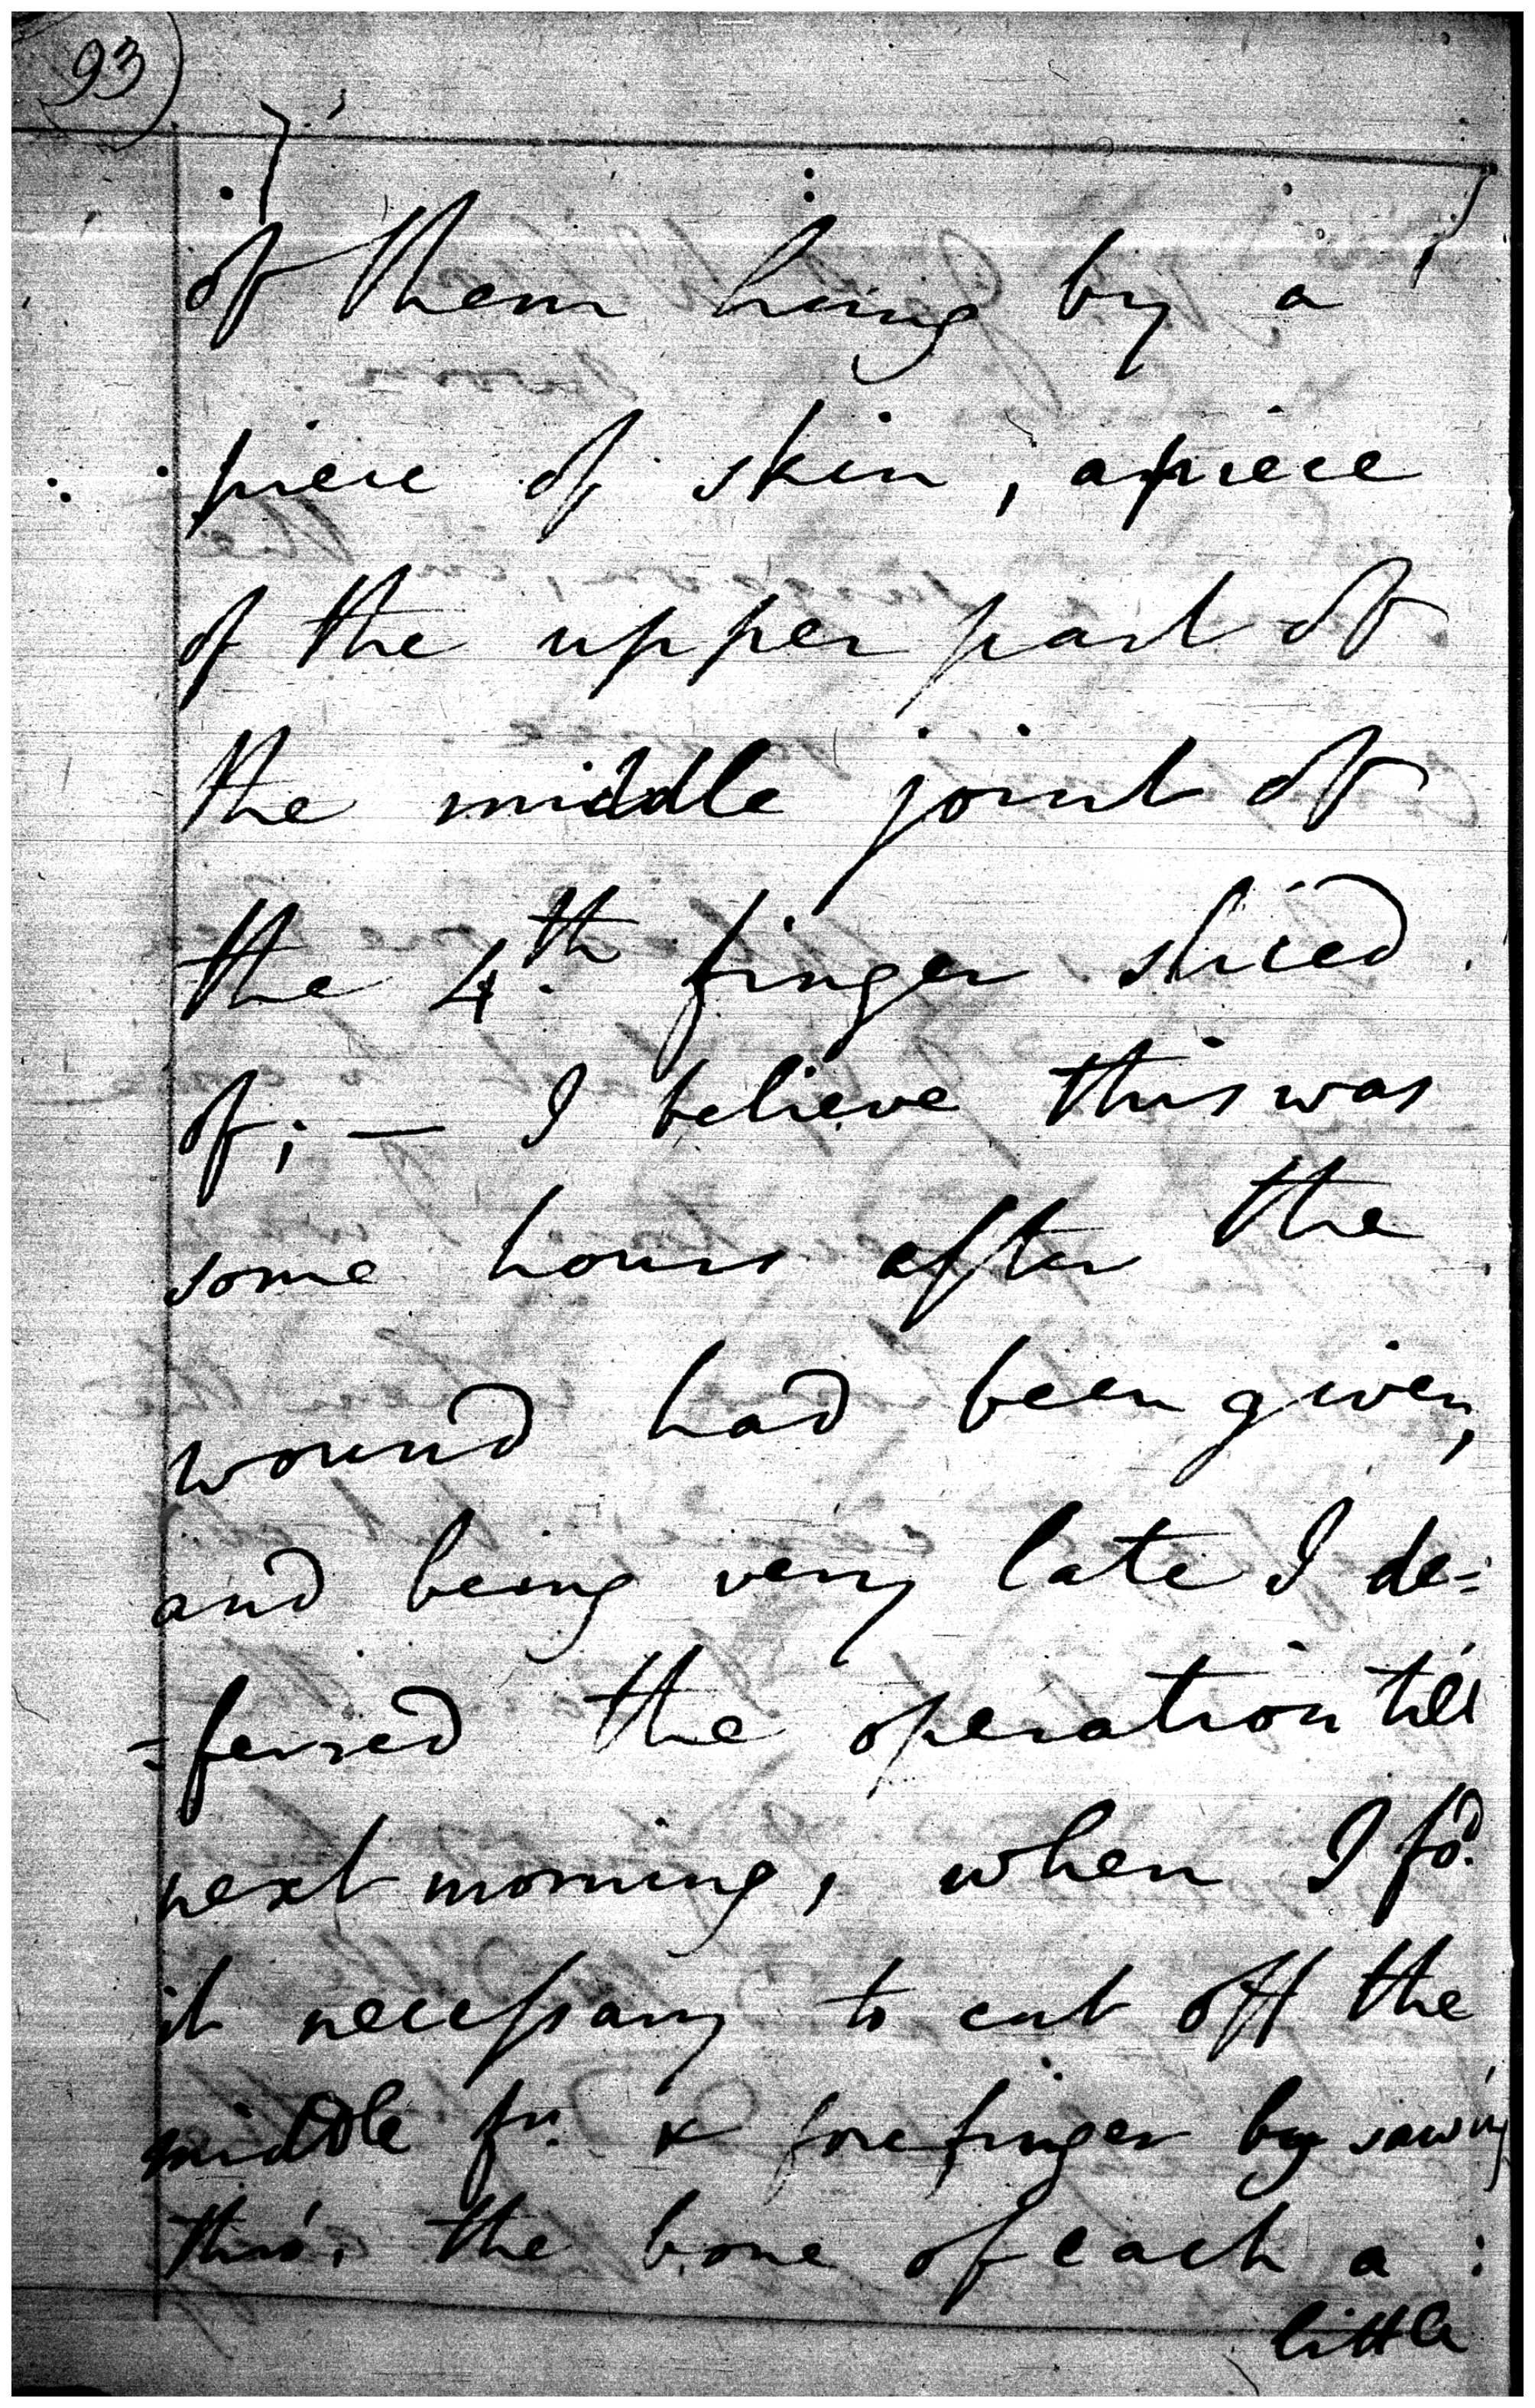 93
of them hung by a
piece of skin, a piece
of the upper part of
the middle joint of
the 4th finger sliced
of; — I believe this was
some hours after the
wound had been given,
and being very late I de=
=ferred the operation till
next morning, when I fod.
it necessary to cut off the
middle fr. & forefinger by sawing
thro'. the bone of each a
little